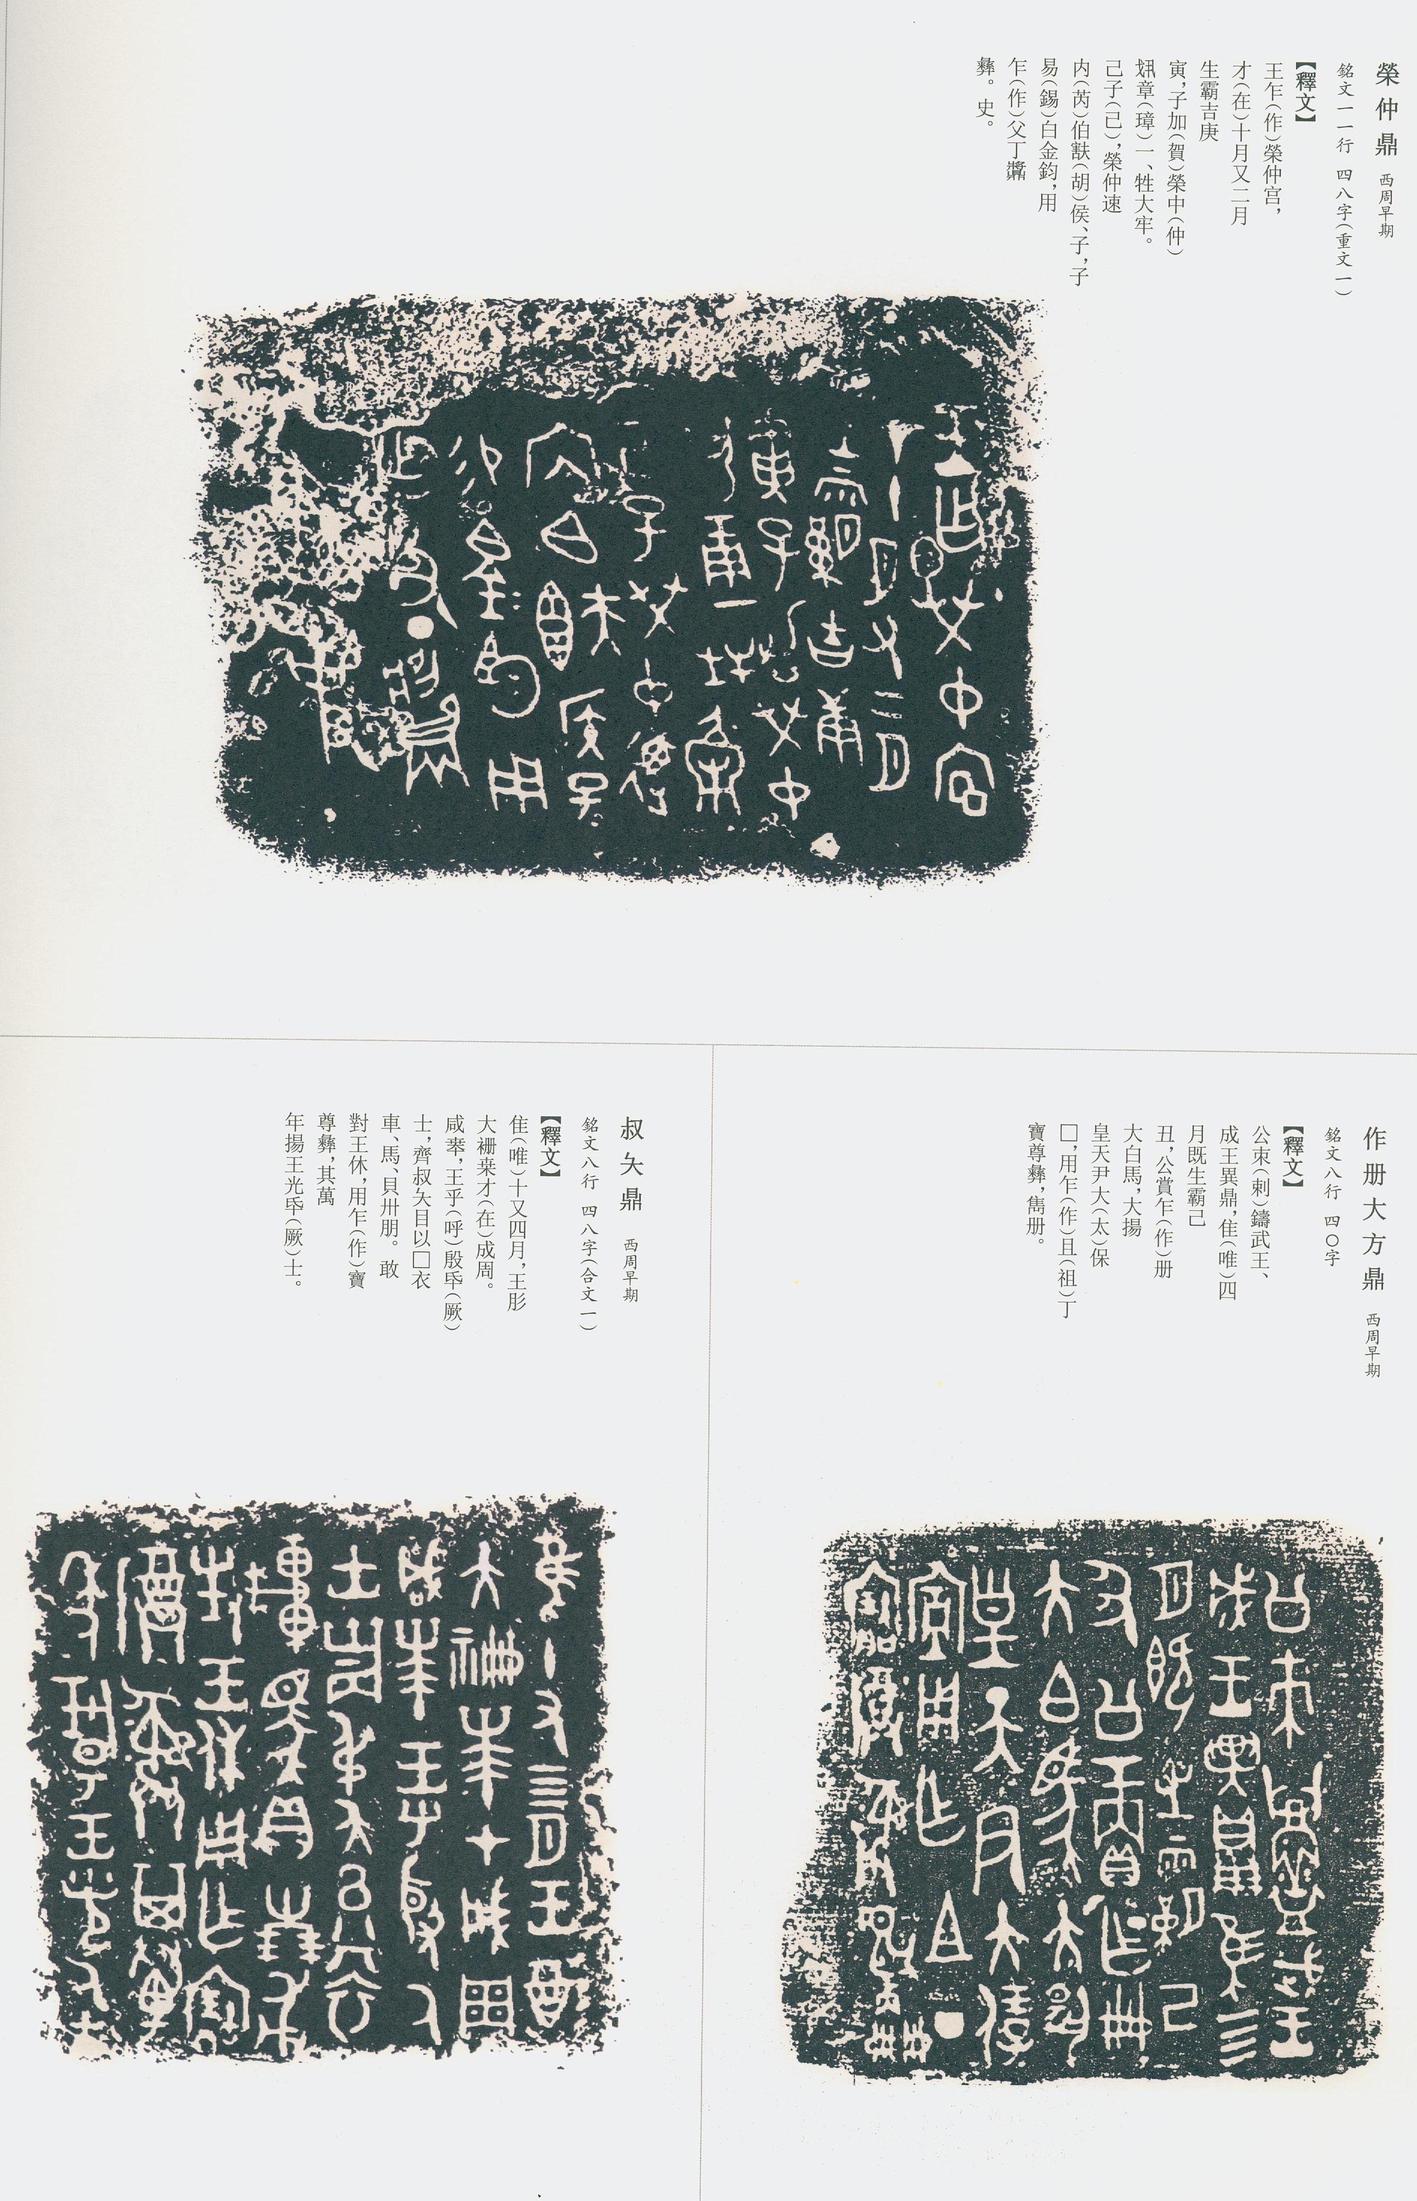 榮仲鼎 西周早期
銘文一一行 四八字(重文一)
【釋文】
王乍(作)榮仲宮,
才(在)十月又二月
生霸吉庚
寅,子加(賀)榮中(仲)
章(璋)一、牲大牢。
己子(已),榮仲速
内(芮)伯㝬(胡)侯、子,子
易(錫)白金鈞,用
乍(作)父丁𩱧
彝。史。
作册大方鼎 西周早期
銘文八行 四〇字
【釋文】
公朿(剌)鑄武王、
成王異鼎,隹(唯)四
月既生霸己
丑,公賞乍(作)册
大白馬,大揚
皇天尹大(太)保
□,用乍(作)且(祖)丁
寶尊彝,雋册。
叔夨鼎 西周早期
銘文八行 四八字(合文一)
【釋文】
隹(唯)十又四月,王肜
大𥛱𠦪才(在)成周。
咸𠦪,王乎(呼)殷氒(厥)
士,齊叔夨目以□衣
車、馬、貝卅朋。敢
對王休,用乍(作)寶
尊彝,其萬
年揚王光氒(厥)士。